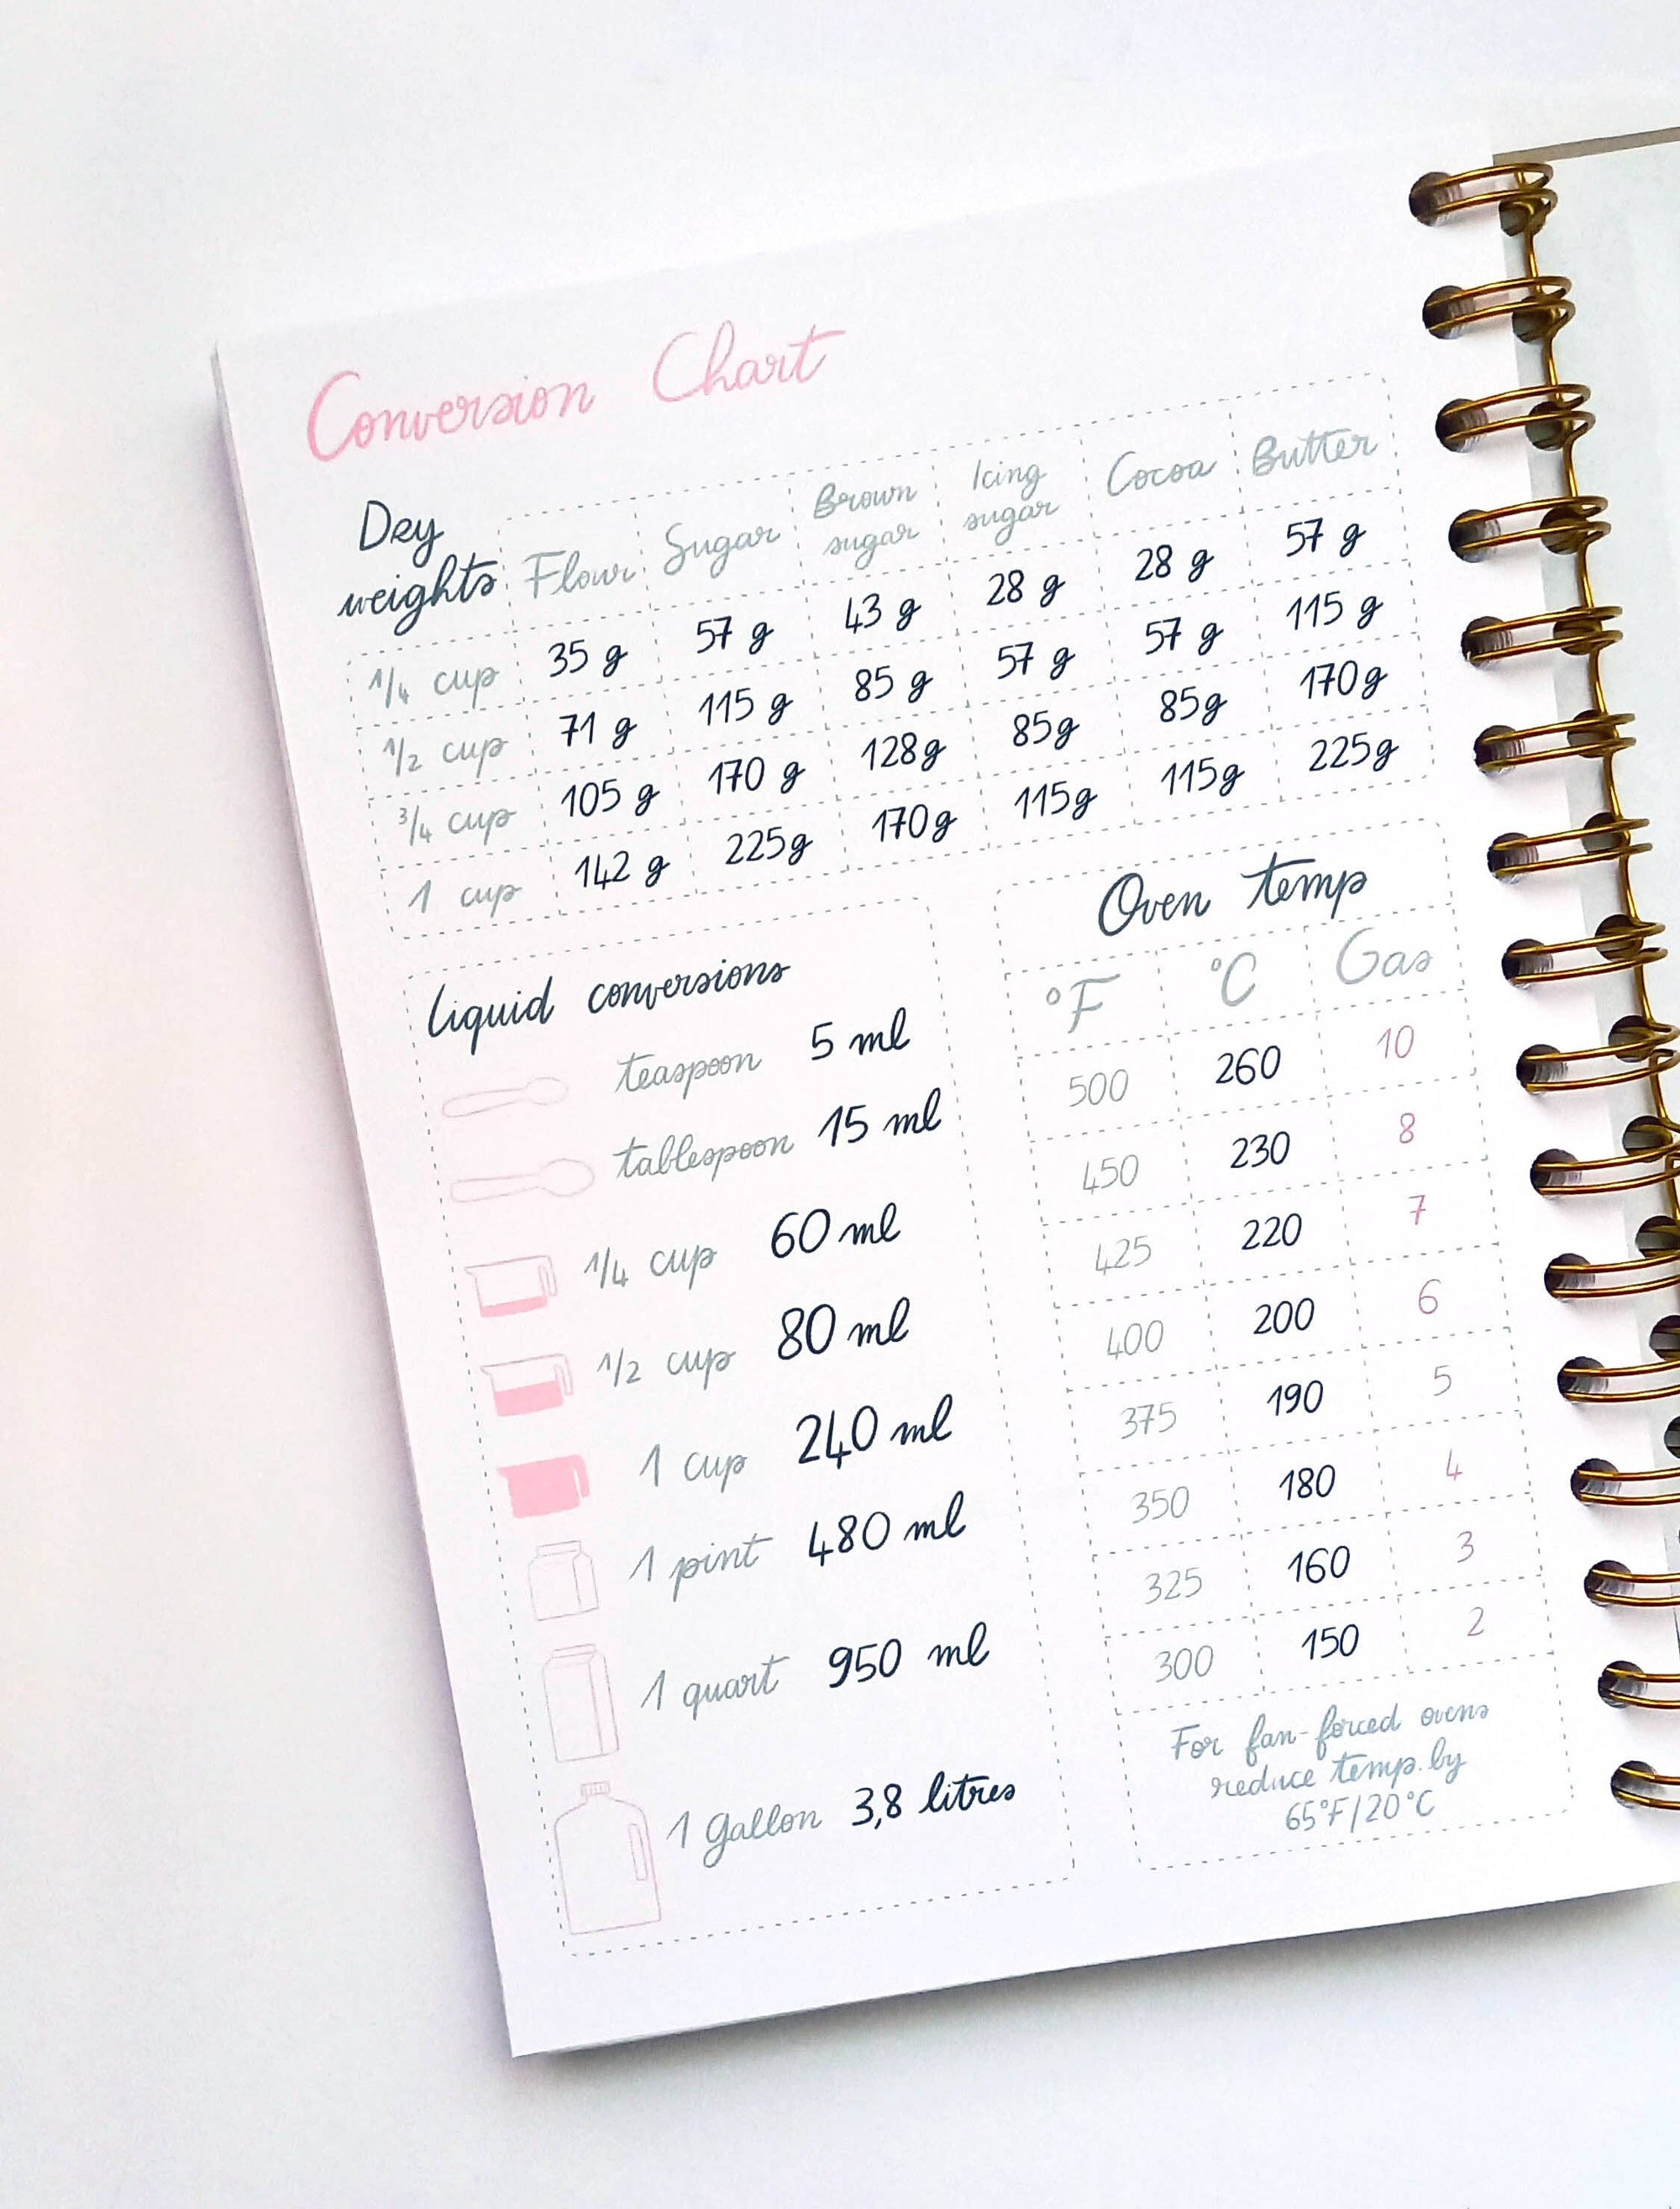 Conversion Chart
Dry weights Flour Sugar Brown sugar Icing sugar Cocoa Butter
1/4 cup 35 g 57 g 43 g 28 g 28 g 57 g
1/2 cup 71 g 115 g 85 g 57 g 57 g 115 g
3/4 cup 105 g 170 g 128g 85g 85g 170g
1 cup 142 g 225g 170g 115g 115g 225g
Liquid conversions
teaspoon 5 ml
tablespoon 15 ml
1/4 cup 60 ml
1/2 cup 80 ml
1 cup 240 ml
1 pint 480 ml
1 quart 950 ml
1 Gallon 3,8 litres
Oven temp
°F °C Gas
500 260 10
450 230 8
425 220 7
400 200 6
375 190 5
350 180 4
325 160 3
300 150 2
For fan-forced ovens
reduce temp. by
65°F/20°C